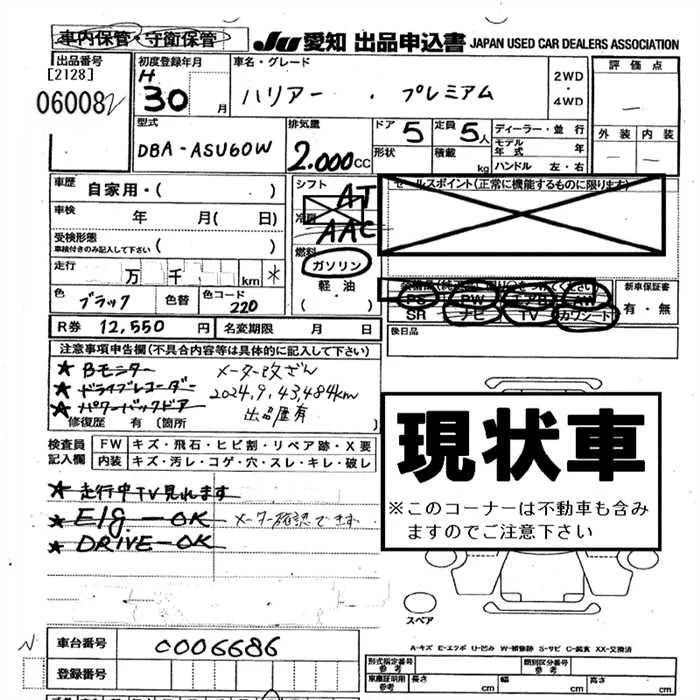 車内保管・守衛保管
JU 愛知 出品申込書 JAPAN USED CAR DEALERS ASSOCIATION
出品番号 [2128] 060082
初度登録年月 H 30 月
車名・グレード ハリアー . プレミアム
2WD ・ 4WD
評価点 —
外装 内装
— —
型式 DBA-ASU60W
排気量 2.000cc
ドア 5 定員 5人
形状 積載 kg
ディーラー・並行
モデル年式 年
ハンドル 左・右
車歴 自家用・( )
車検 年 月( 日)
受検形態 車検付きのみ記入して下さい ( )
走行 万 千 km *
色 ブラック 色替 色コード 220
R券 12,550 円 名変期限 月 日
シフト AT
冷房 AAC
燃料 ガソリン
軽油
( )
セールスポイント(正常に機能するものに限ります)
PS PW エアB AW
SR ナビ TV カワシート
新車保証書
有・無
後日品
注意事項申告欄(不具合内容等は具体的に記入して下さい)
★ Bモニター メーター改ざん
★ ドライブレコーダー 2024,9,43,484km
★ パワーバックドア 出品歴有
修復歴 有(箇所
検査員記入欄
FW キズ・飛石・ヒビ割・リペア跡・X要
内装 キズ・汚レ・コゲ・穴・スレ・キレ・破レ
★ 走行中TV見れます
★ E/g-OK メーター確認できず
★ DRIVE-OK
現状車
※このコーナーは不動車も含み
ますのでご注意下さい
スペア
A-キズ E-エクボ U-凹み W-補修跡 S-サビ C-腐食 XX-交換済
N
車台番号 0006686
登録番号
型式指定番号 参考
類別区分番号 参考
車庫証明用 参考 長さ cm 幅 cm 高さ cm